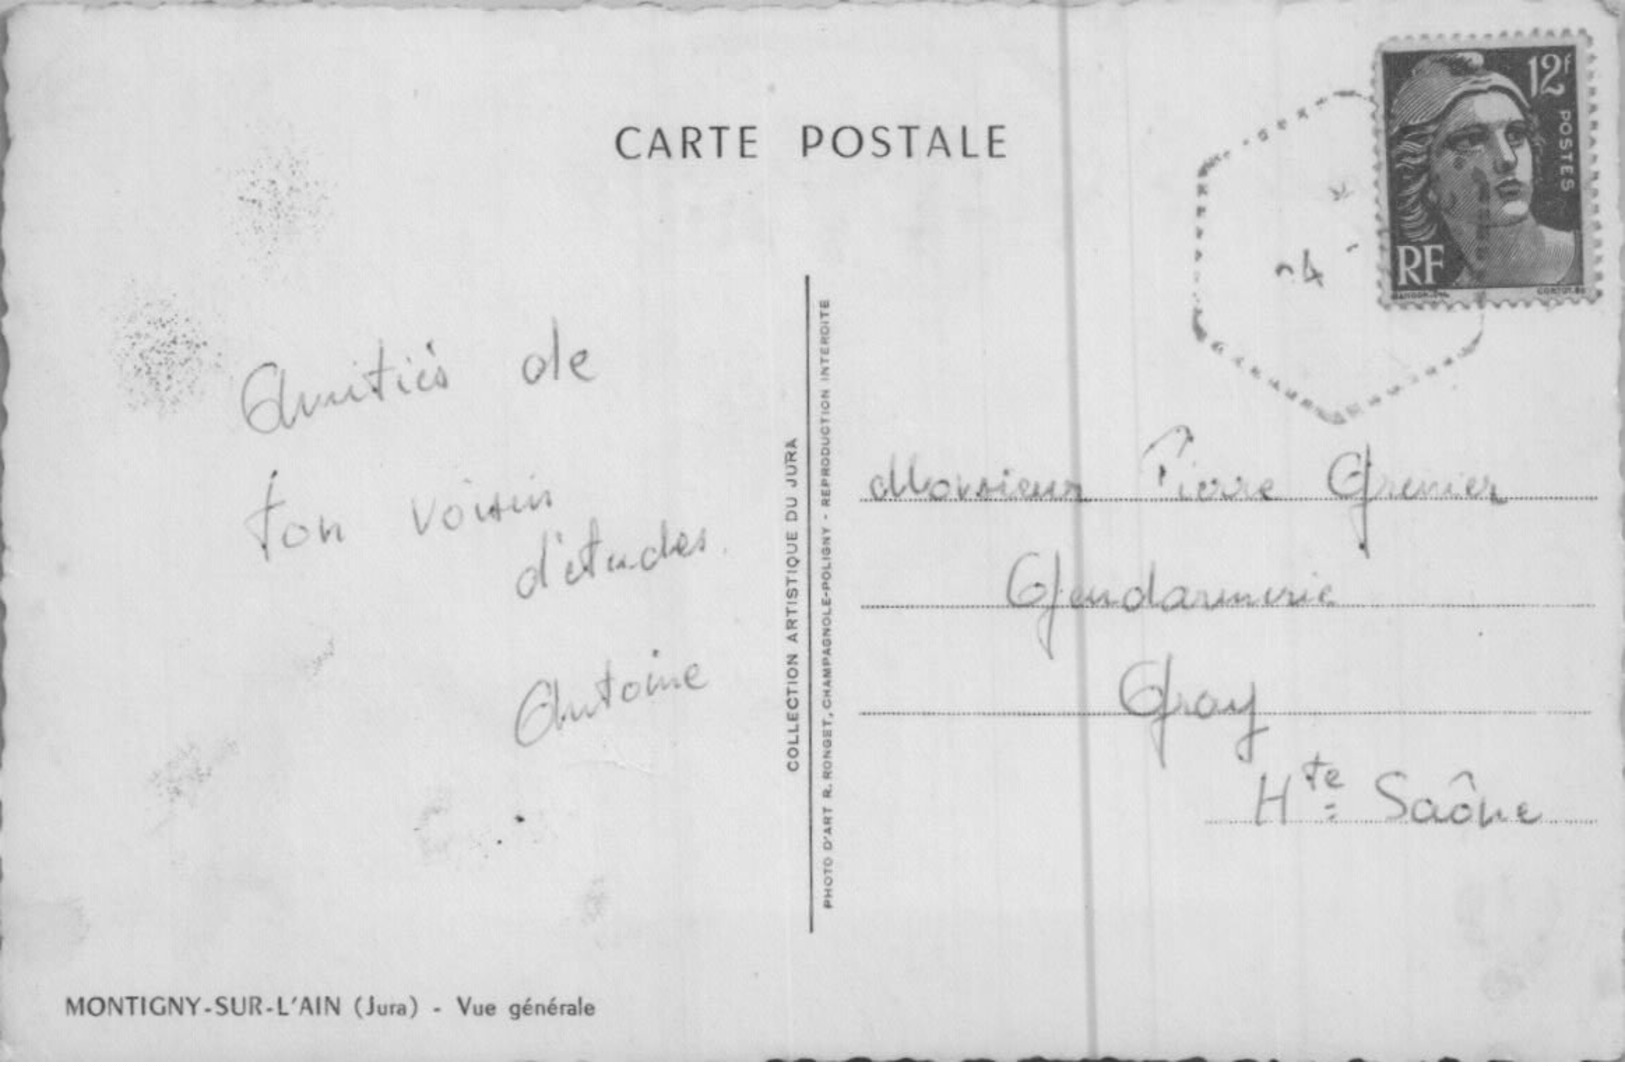 CARTE POSTALE
12f
POSTES
RF
24
Amitiés de
ton voisin
d'études.
Antoine
COLLECTION ARTISTIQUE DU JURA
PHOTO D'ART R. RONGET, CHAMPAGNOLE-POLIGNY - REPRODUCTION INTERDITE
Monsieur Pierre Grenier
Gendarmerie
Gray
Hte Saône
MONTIGNY-SUR-L'AIN (Jura) - Vue générale